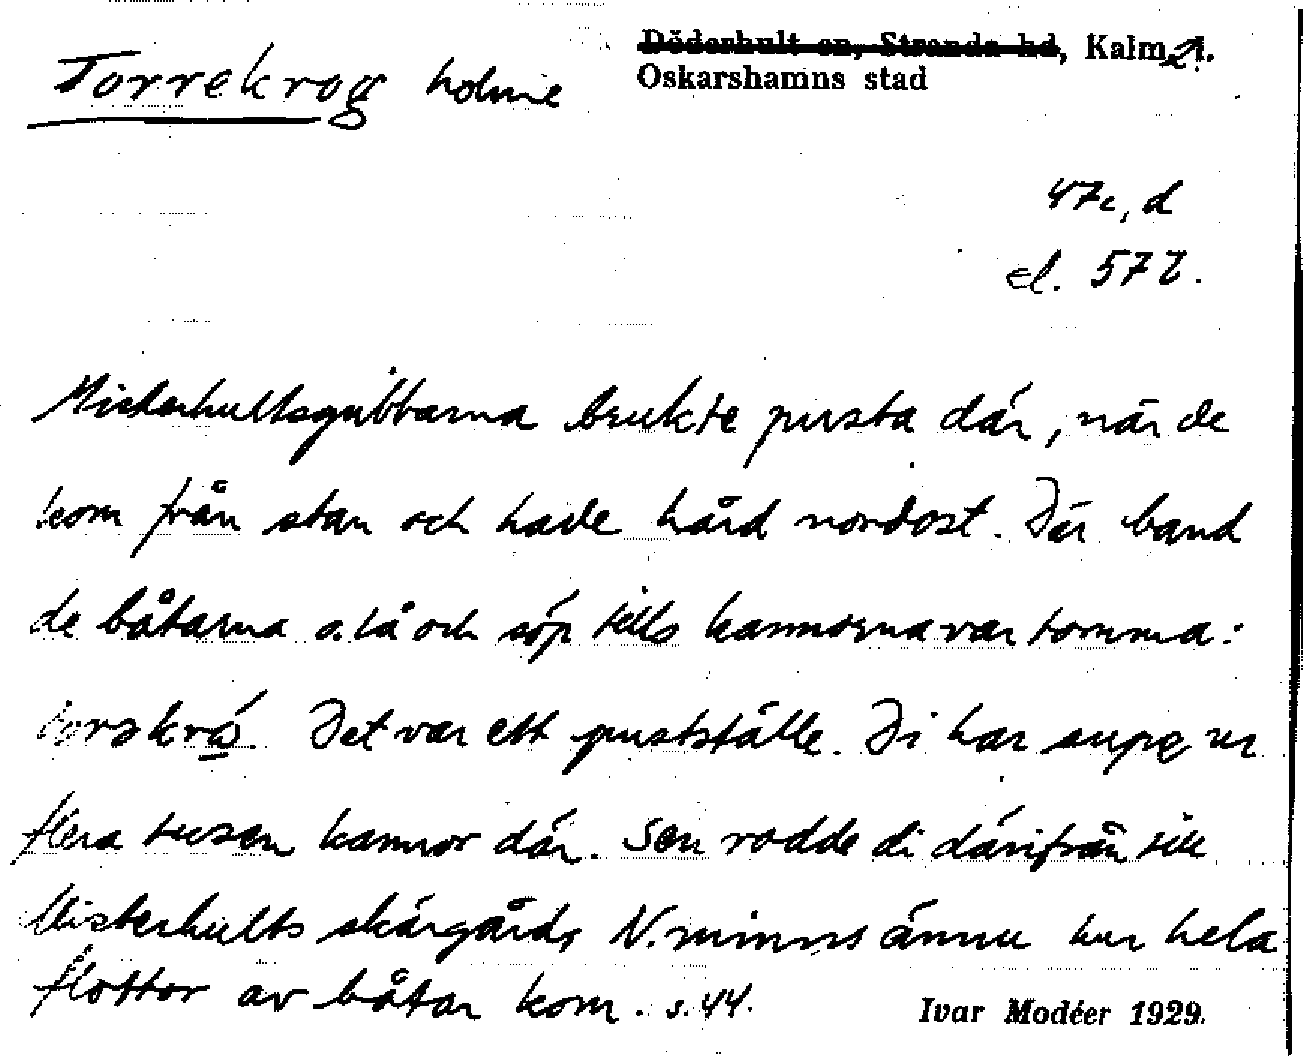 Torrekrog holme
Döderhult sn, Stranda hd, Kalm. l.
Oskarshamns stad
47c, d
el. 57 l.
Misterhultsgubbarna brukte pusta där, när de
kom från stan och hade hård nordost. Där band
de båtarna o. lå och söp tills kannorna var tomma:
torskrå. Det var ett pustställe. Di har supe ur
flera tusen kannor där. Sen rodde di därifrån till
Misterhults skärgård, N. minns ännu hur hela
flottor av båtar kom. s. 44.
Ivar Modéer 1929.